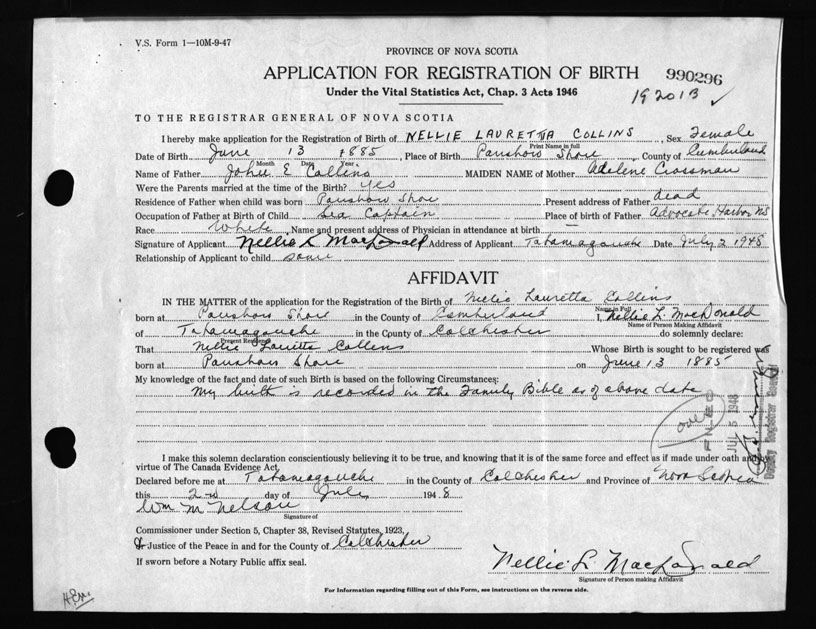 V.S. Form 1—10M-9-47
PROVINCE OF NOVA SCOTIA
APPLICATION FOR REGISTRATION OF BIRTH
990296
Under the Vital Statistics Act, Chap. 3 Acts 1946
192013 ✓
TO THE REGISTRAR GENERAL OF NOVA SCOTIA
I hereby make application for the Registration of Birth of NELLIE LAURETTA COLLINS, Sex Female
Print Name in full
Date of Birth June 13 1885, Place of Birth Parrsboro Shore, County of Cumberland
Month Date Year
Name of Father John E Collins MAIDEN NAME of Mother Adelene Crossman
Were the Parents married at the time of the Birth? yes
Residence of Father when child was born Parrsboro Shore Present address of Father dead
Occupation of Father at Birth of Child Sea Captain Place of birth of Father Advocate Harbor NS
Race White, Name and present address of Physician in attendance at birth —
Signature of Applicant Nellie L MacDonald Address of Applicant Tatamagouche Date July 2 1948
Relationship of Applicant to child same
AFFIDAVIT
IN THE MATTER of the application for the Registration of the Birth of Nellie Lauretta Collins
Name in Full
born at Parrsboro Shore in the County of Cumberland I, Nellie L. MacDonald
Name of Person Making Affidavit
of Tatamagouche in the County of Colchester do solemnly declare:
Present Residence
That Nellie Lauretta Collins Whose Birth is sought to be registered was
born at Parrsboro Shore on June 13 1885
My knowledge of the fact and date of such Birth is based on the following Circumstances:
My birth is recorded in the Family Bible as of above date
over
FILED
JUL 5 1948
Deputy Registrar General
I make this solemn declaration conscientiously believing it to be true, and knowing that it is of the same force and effect as if made under oath and by
virtue of The Canada Evidence Act.
Declared before me at Tatamagouche in the County of Colchester and Province of Nova Scotia
this 2nd day of July 1948
Wm M Nelson
Signature of
Commissioner under Section 5, Chapter 38, Revised Statutes, 1923,
or Justice of the Peace in and for the County of Colchester
If sworn before a Notary Public affix seal.
Nellie L MacDonald
Signature of Person making Affidavit
For Information regarding filling out of this Form, see instructions on the reverse side.